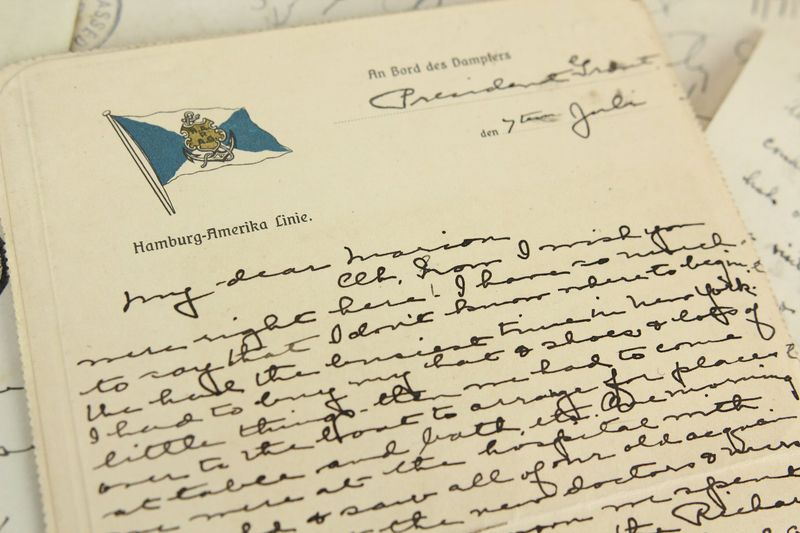 An Bord des Dampfers
President Grant
den 7ten Juli
Hamburg-Amerika Linie.
My dear Marion
I wish you
were right here! I have so much
to say that I don't know where to begin.
We had the busiest time in New York.
I had to buy my hat & shoes & lots of
little things - then we had to come
over to the boat to arrange for places
at table and bath, etc. One morning
we were at the hospital with
& saw all of our old acquain
the new doctors & nurs
we spent
the Richar